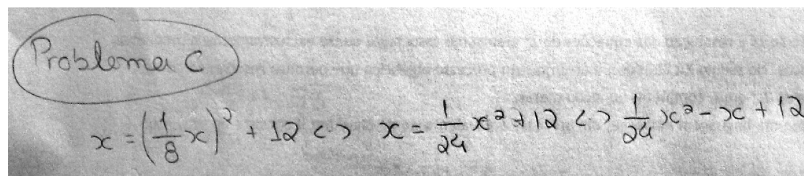 Problema C
x = (1/8 x)² + 12 <-> x = 1/24 x² + 12 <-> 1/24 x² - x + 12